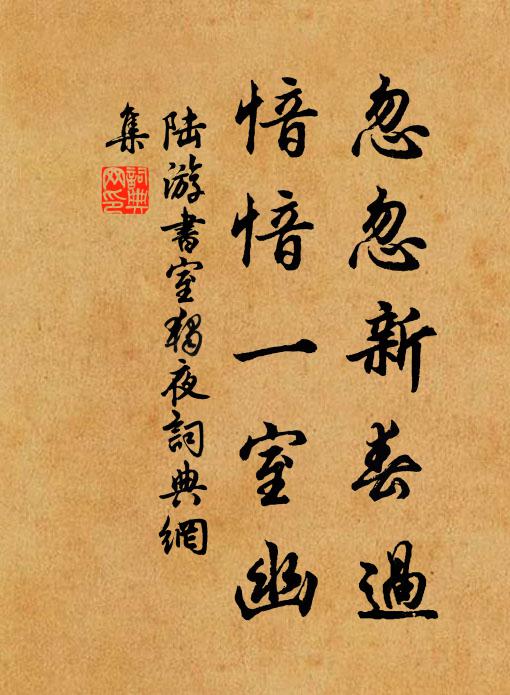 忽忽新春過
愔愔一室幽
陆游書室獨夜詞典網
集
詞典网印